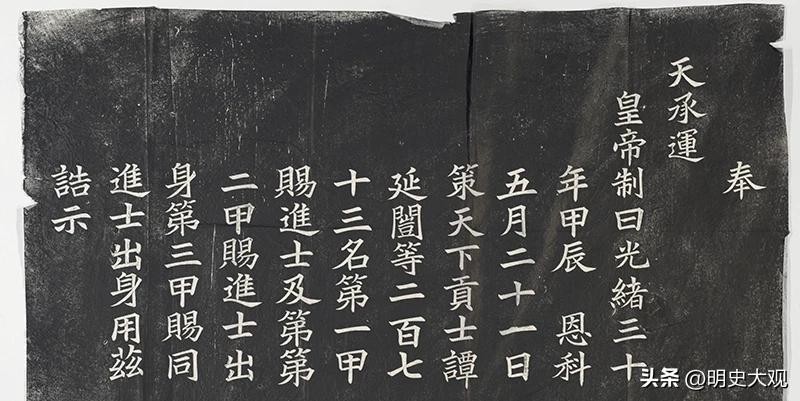 奉
天承運
皇帝制曰光緒三十
年甲辰　恩科
五月二十一日
策天下貢士譚
延闓等二百七
十三名第一甲
賜進士及第第
二甲賜進士出
身第三甲賜同
進士出身用茲
誥示
头条 @明史大观